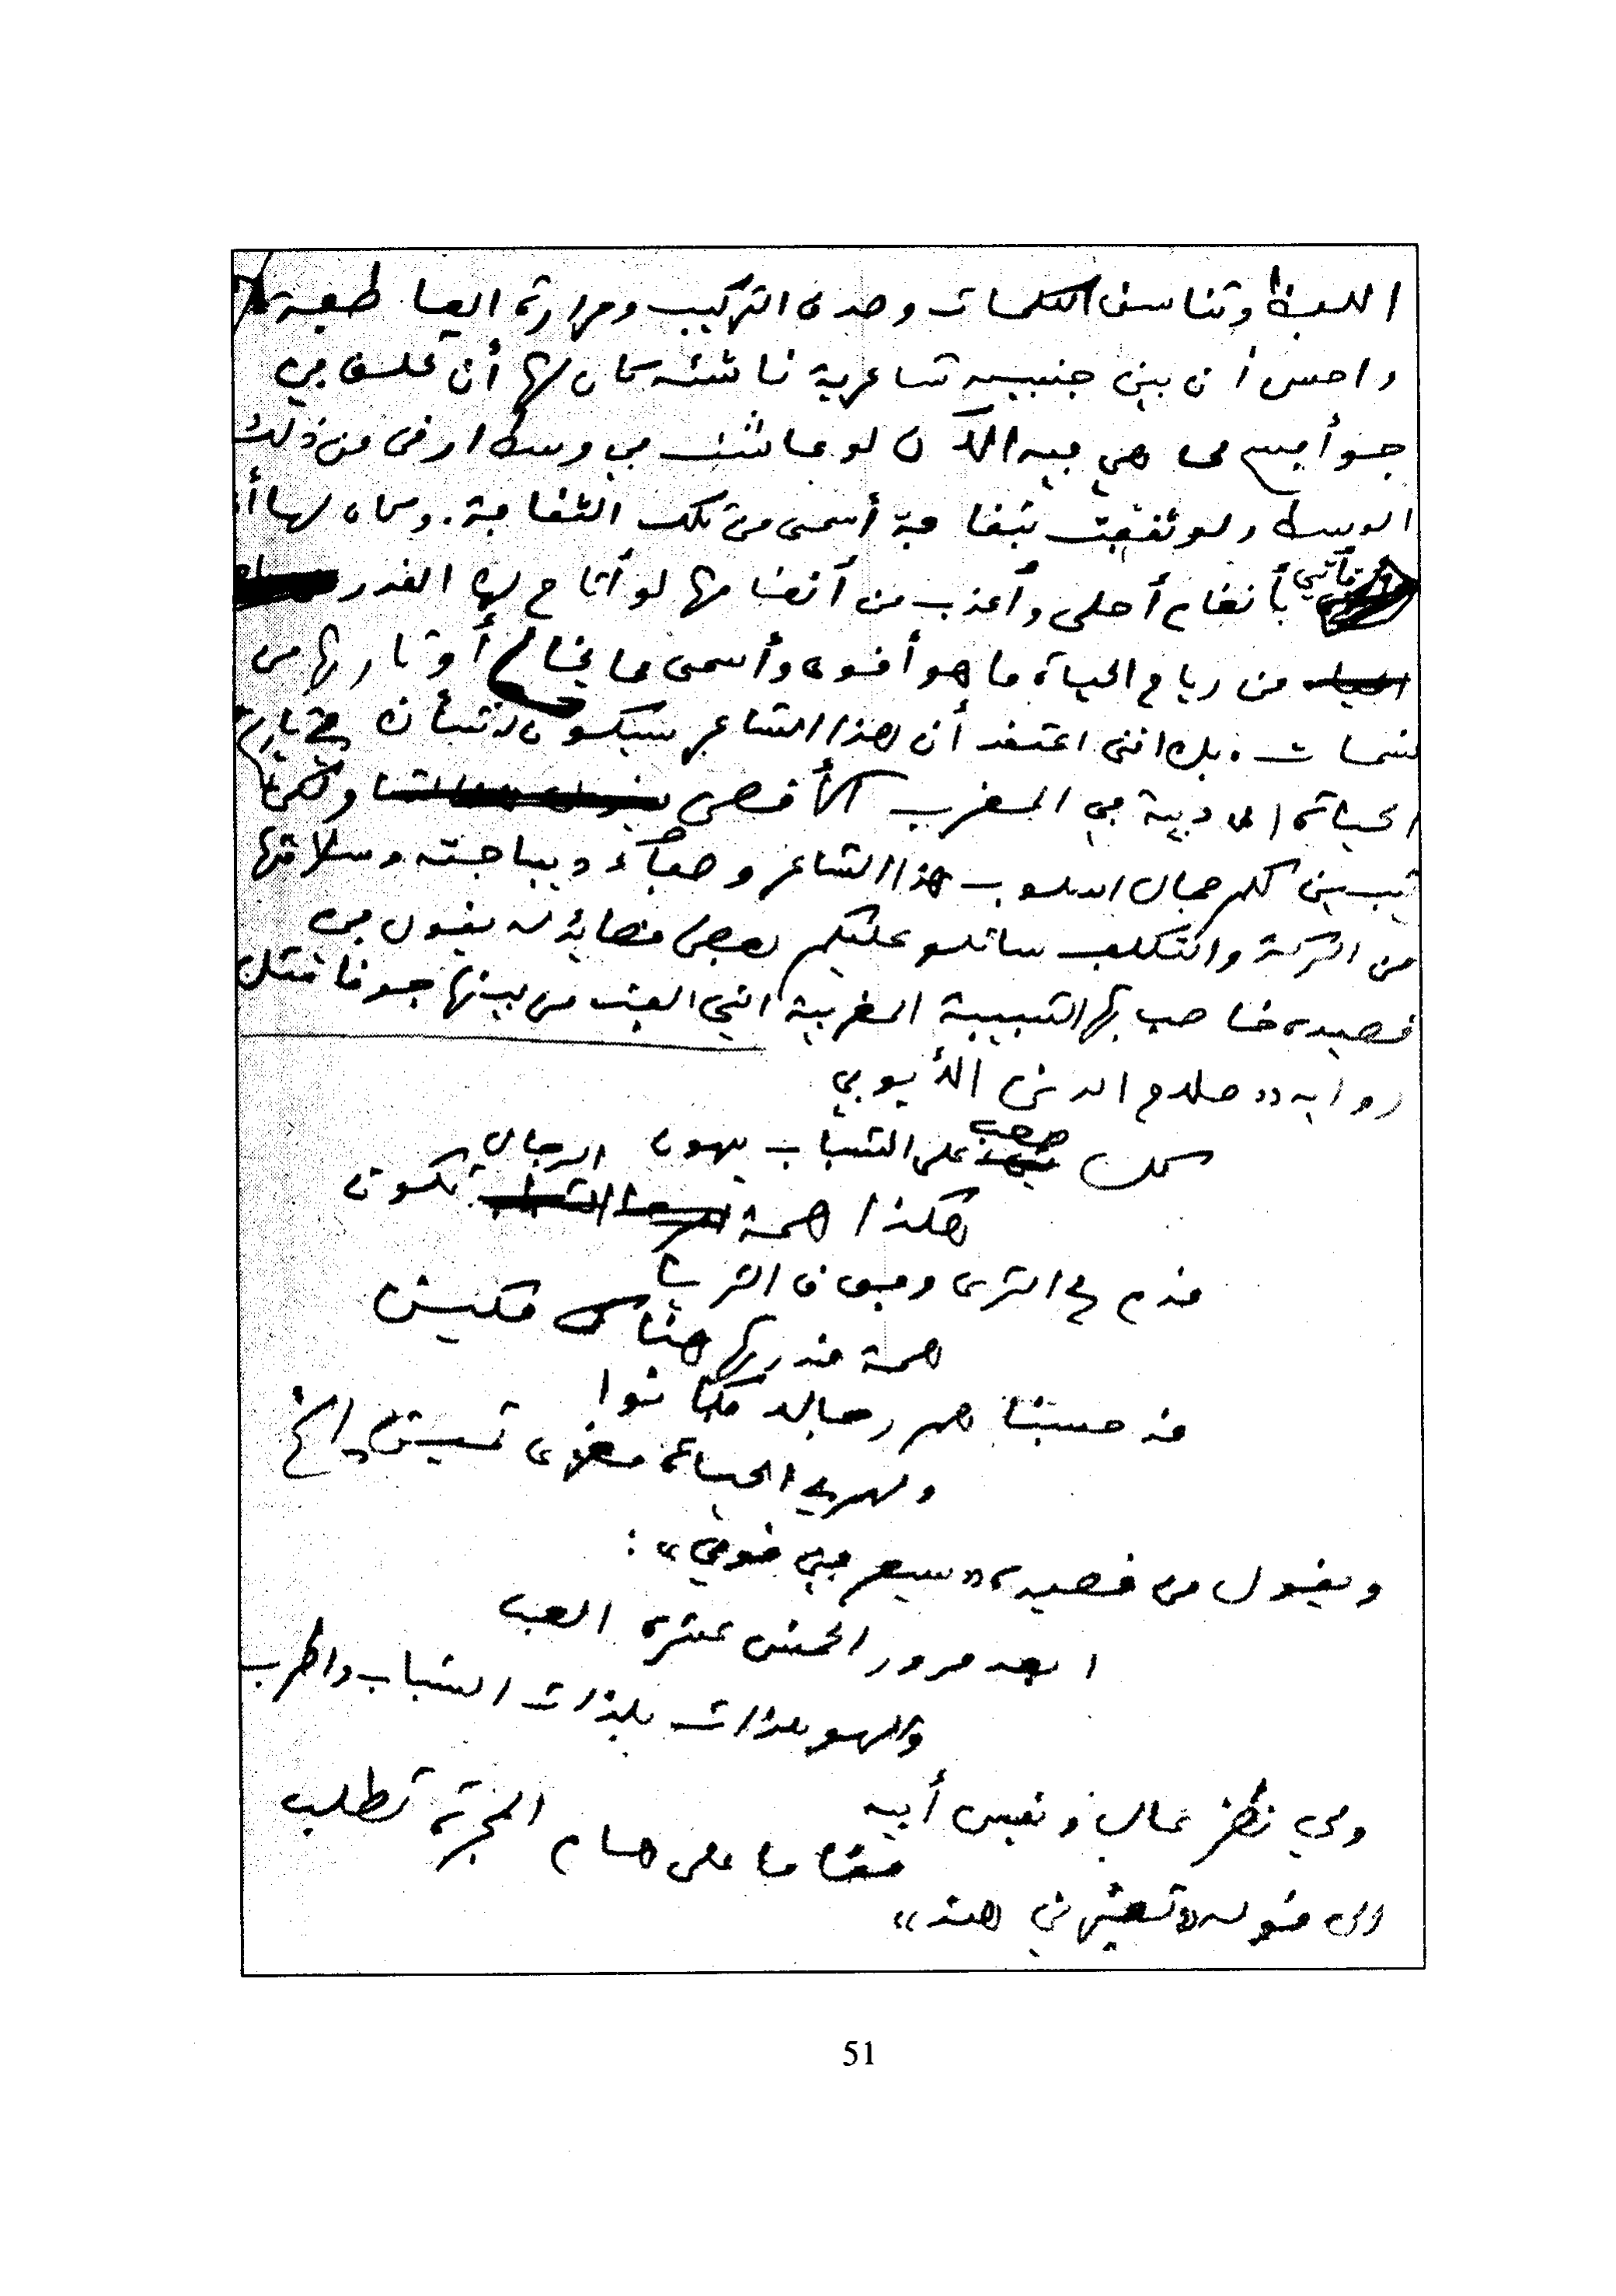 اللفظ وتناسق الكلمات وجدة التركيب وحرارة العاطفة
واحس أن بين جنبيه شاعرية ناشئة كان لها أن تحلق في
جو أفسح مما هي فيه الآن لو عاشت في وسط ارقى من ذلك
الوسط ولو ثقفت بثقافة أسمى من تلك الثقافة. وكان لها أن
تأتي بأنغام أحلى وأعذب من أنغامها لو أتاح لها القدر
من رياح الحياة ما هو أقوى وأسمى مما أوتارها من
نسمات. بل انني اعتقد أن لهذا الشاعر سيكون شأن في تاريخ
الحياة الادبية في المغرب الأقصى ولكي
يتبين لكم جمال اسلوب هذا الشاعر وصفاء ديباجته وسلامتها
من الركة والتكلف ساتلو عليكم بعض قصائد له يقول في
قصيدة خاطب بها الشبيبة المغربية التي الفت من بينها جوقا تمثل
رواية «صلاح الدين الأيوبي
كل صعب على الشباب يهون
هكذا همة الرجال تكون
قدم في الثرى وفوق الثريا
همة قدرها هناك مكين
قد حسبنا هم رجالا فكانوا
ولهم في الحياة مغزى ثمين الخ
ويقول من قصيدة «سيعرفني قومي»:
ابعد مرور الخمس عشرة العب
والهو بلذات الشباب واطرب
ولي نظر عال ونفس أبية
مقاما على هام المجرة تطلب
الى قوله «تعشقني هند»
51